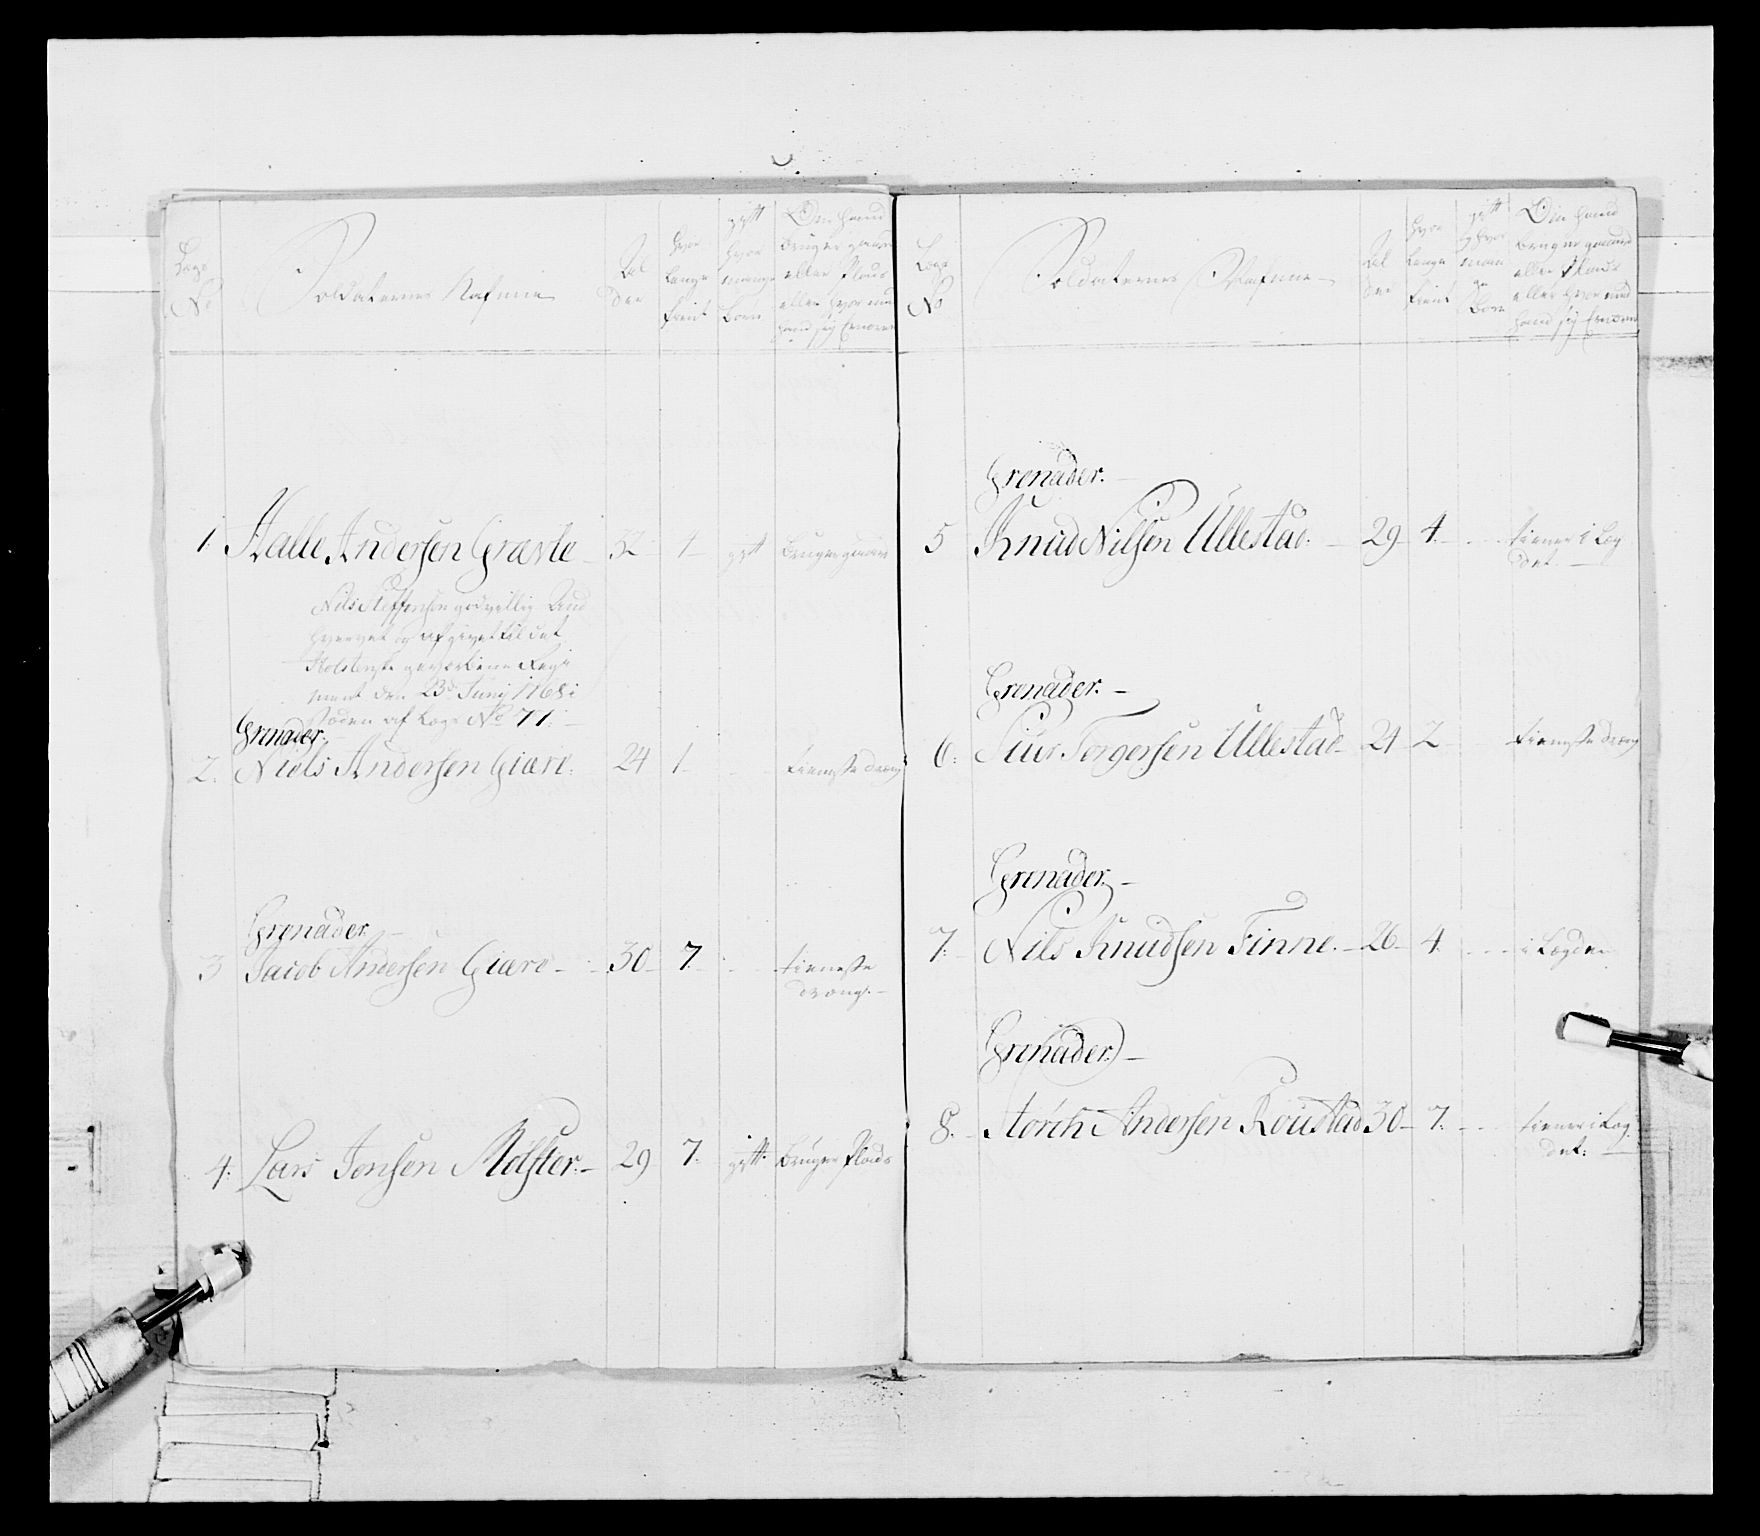 Lægs
No
Soldaternes Nafnne
Al
der
hvor
længe
tient
gift
hvor
mange
Børn
Om hand
bruger gaard
eller Plads
eller hvor med
hand sig Ernærer
1. Halle Andersen Græve 32 4 gift Bruger gaard
Nils Steffensen godvillig And
hvervet og afgivet til det
Holstenske gevorbene Regi
ment den 23d Junij 1768 i
støden af Læg No 77.
Grenader.
2. Niels Andersen Giære. 24 1. tienste dreng
Grenader.
3 Jacob Andersen Giære 30 7. tieneste
dreng.
4. Lars Jonsen Mølster. 29 7. gift. Bruger Plads
Lægs
No
Soldaternes Nafnne
Al
der
hvor
længe
tient
gift
og hvor
man
ge
Børn
Om hand
bruger gaard
eller Plads
eller hvor med
hand sig Ernærer
Grenader.
5 Knud Nilsen Ullestad. 29 4. tiener i Læg
det.
Grenader.
6. Siur Torgersen Ullestad 24 2 tieneste dreng
Grenader.
7. Nils Knudsen Finne. 26 4. i Lægden
Grenader.
8. Størch Andersen Roustad 30 7. tiener i Læg
det.